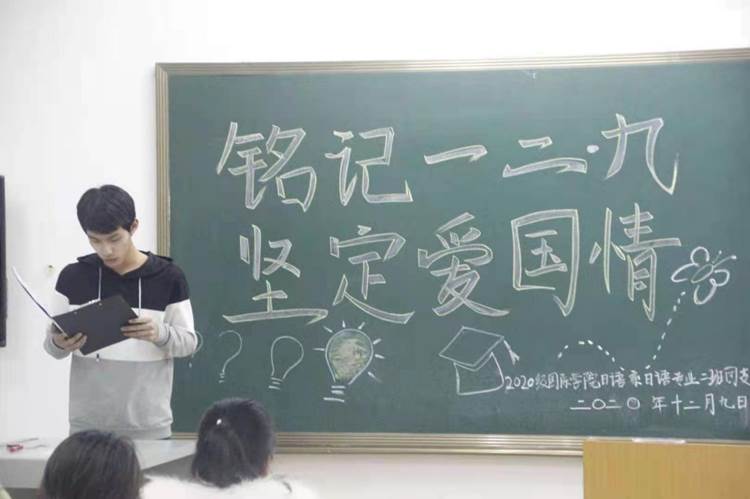 铭记一二·九
坚定爱国情
2020级国际学院日语系日语专业二班团支
二〇二〇年十二月九日